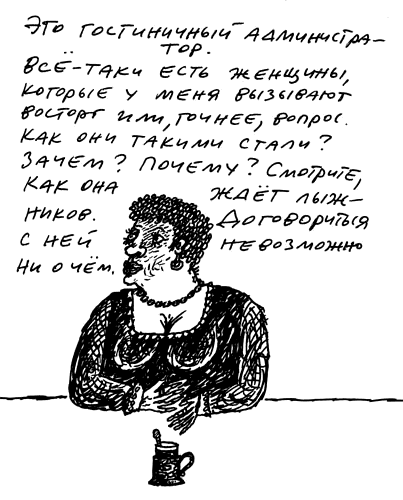 Это гостиничный администра-
тор.
Всё-таки есть женщины,
которые у меня вызывают
восторг или, точнее, вопрос.
Как они такими стали?
Зачем? Почему? Смотрите,
как она ждёт лыж-
ников. Договориться
с ней невозможно
ни о чём.